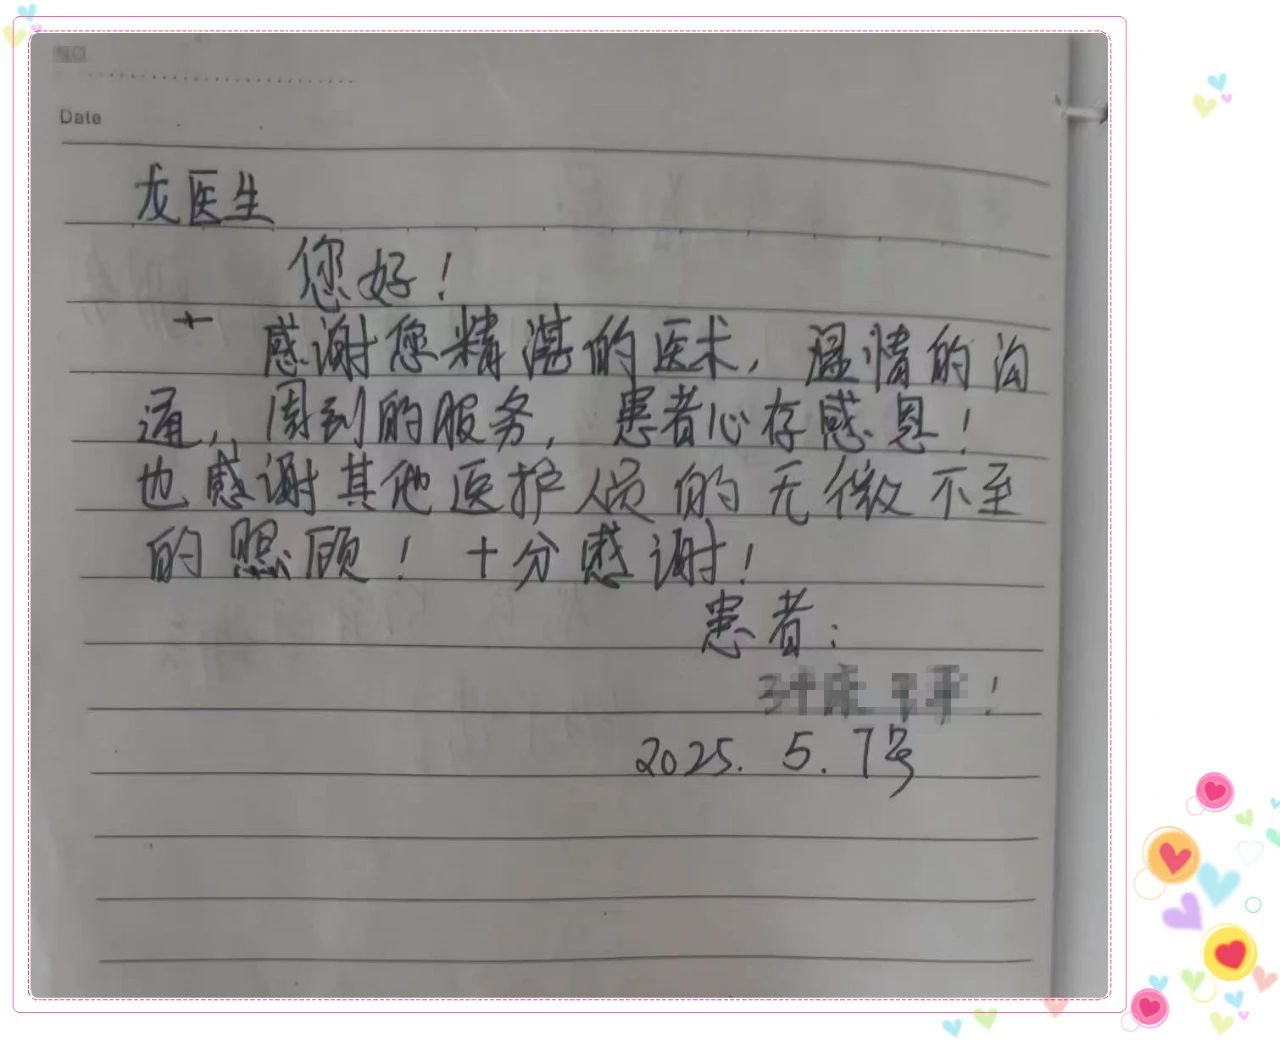 Date
龙医生
您好！
感谢您精湛的医术，温情的沟
通，周到的服务，患者心存感恩！
也感谢其他医护人员的无微不至
的照顾！十分感谢！
患者：
2025.5.7号